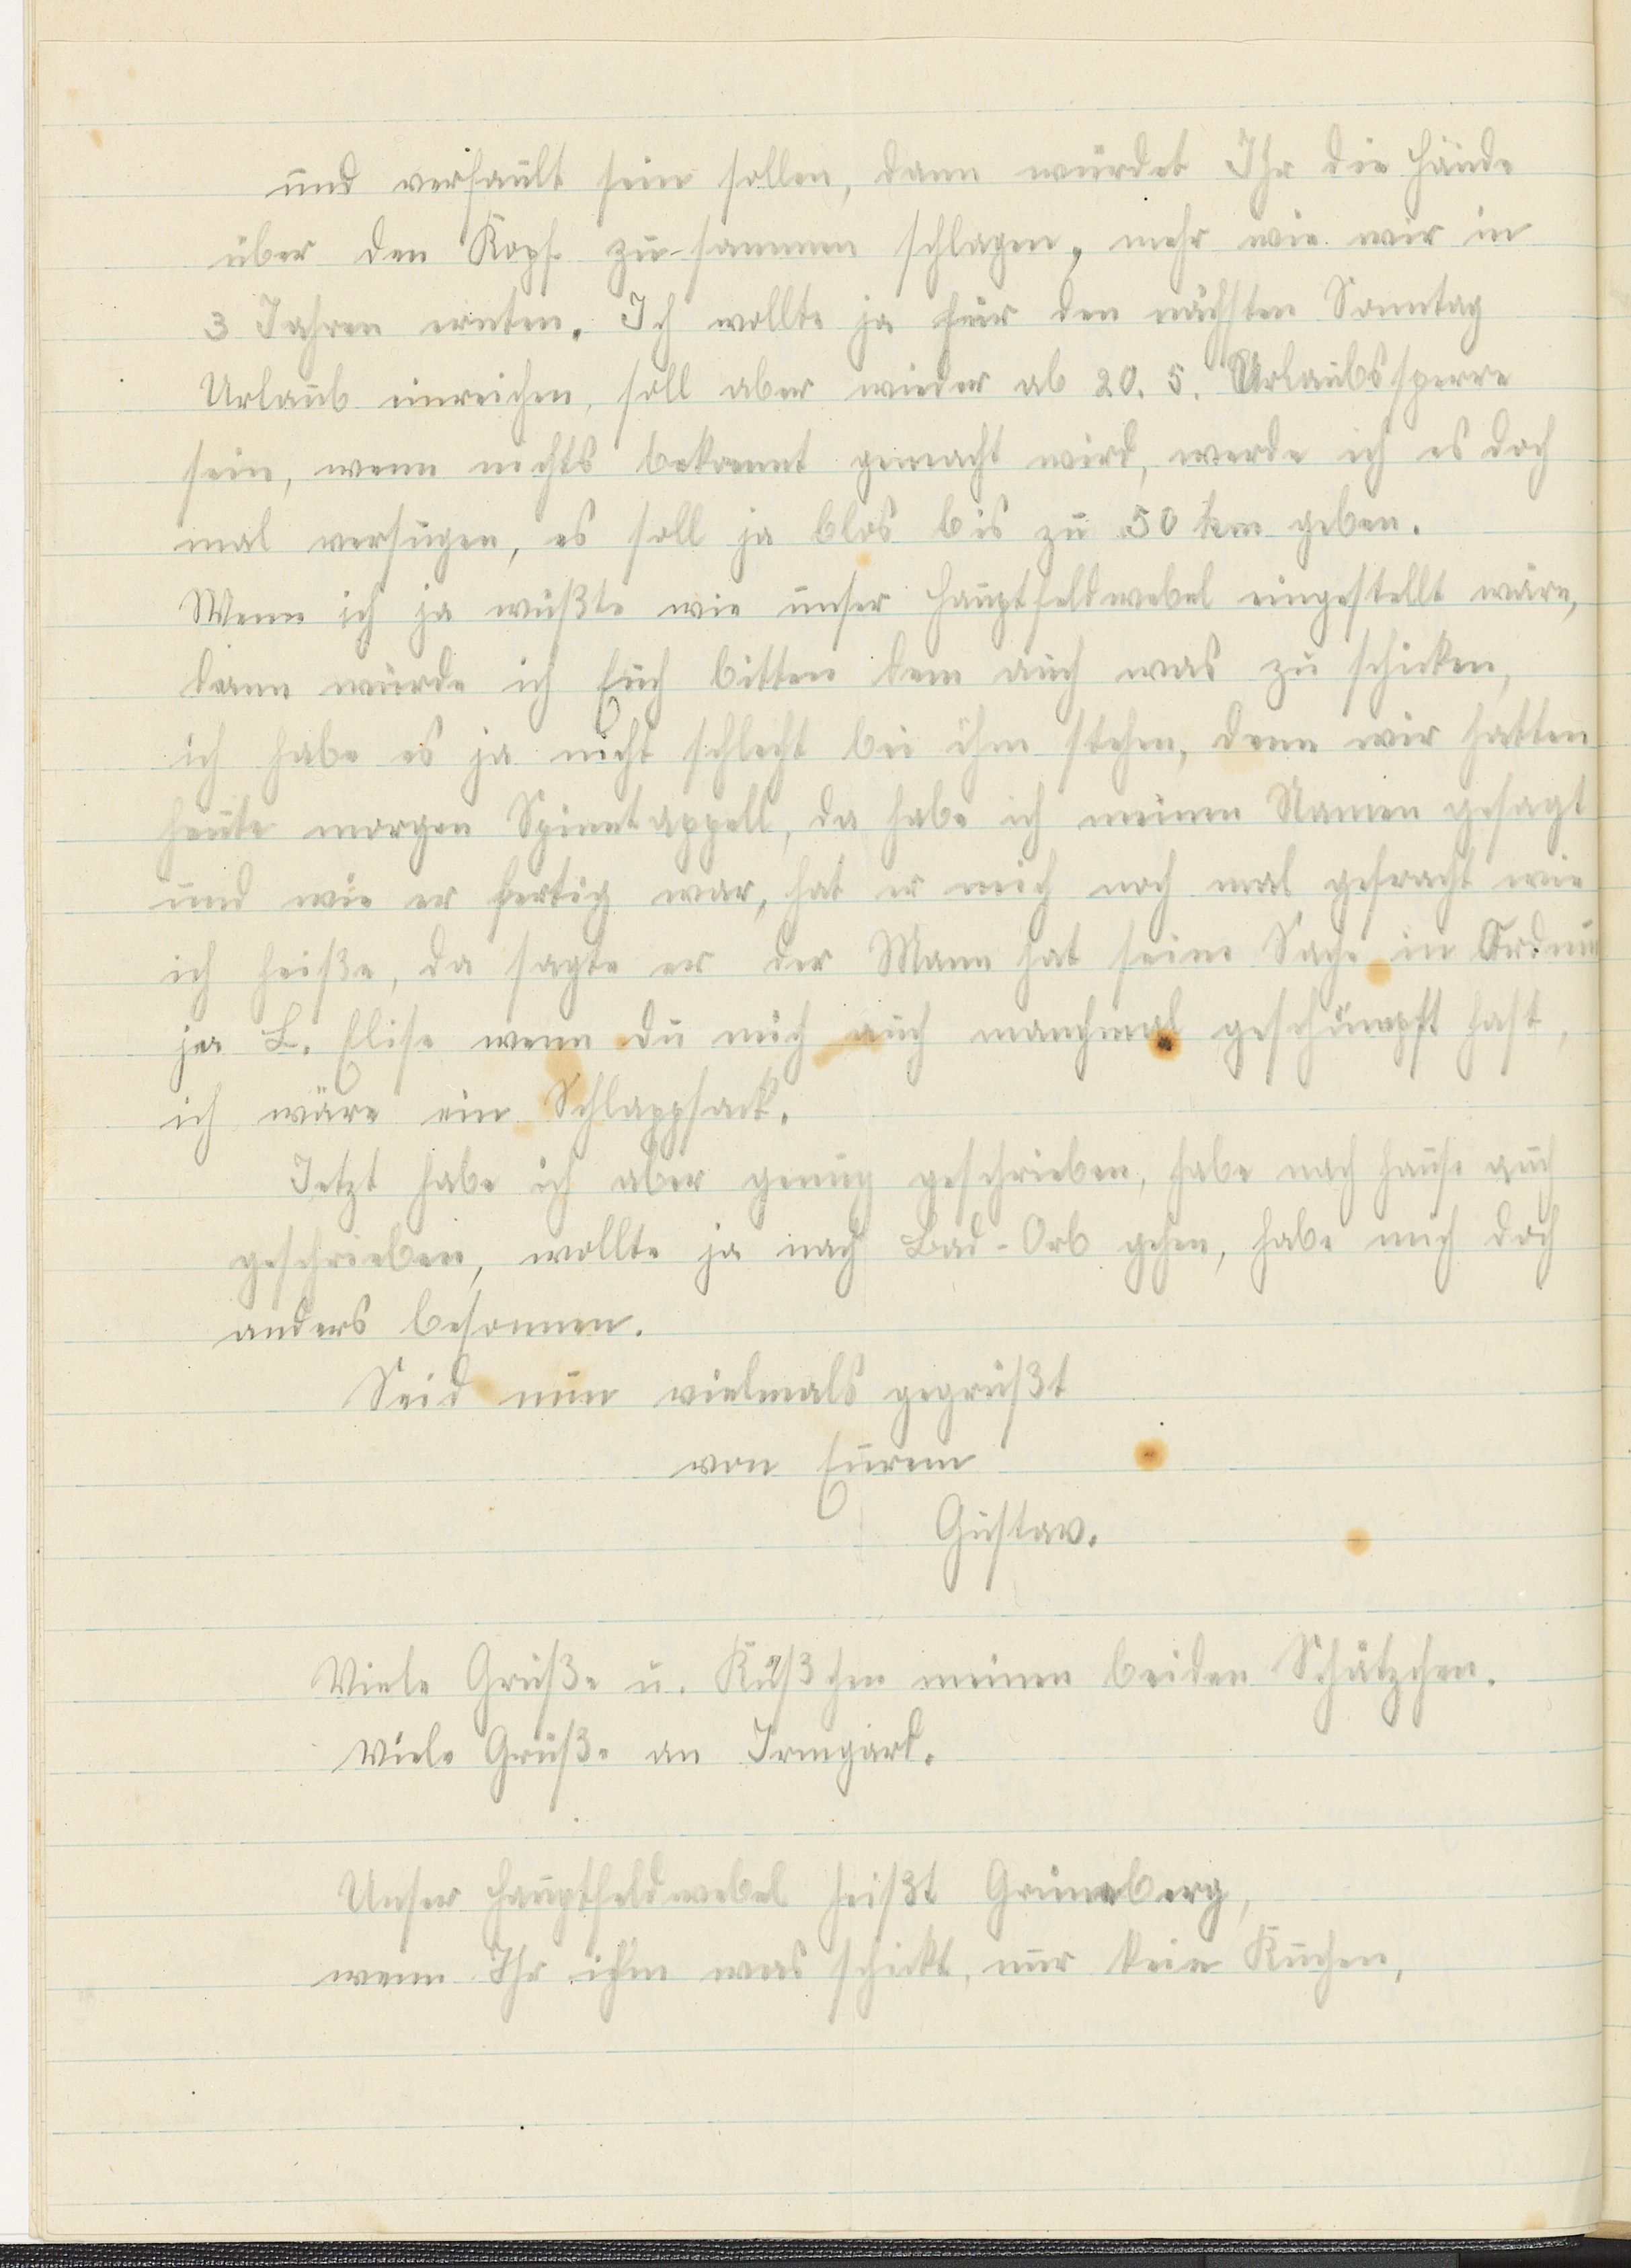 und verfault sein sollen, dann würdet Ihr die Hände
über den Kopf zu-sammen schlagen, mehr wie wir in
3 Jahren ernten. Ich wollte ja für den nächsten Sonntag
Urlaub einreichen, soll aber wieder ab 20. 5. Urlaubssperre
sein, wenn nichts bekannt gemacht wird, werde ich es doch
mal versugen, es soll ja blos bis zu 50 km geben.
Wenn ich ja wüßte wie unser Hauptfeldwebel eingestellt wäre,
dann würde ich Euch bitten dem auch was zu schicken,
ich habe es ja nicht schlecht bei ihm stehen, denn wir hatten
heute morgen Spinntappell, da habe ich meinen Namen gesagt
und wie er fertig war, hat er mich noch mal gefracht wie
ich heiße, da sagte er der Mann hat seine Sache in Ordnun
ja L. Elise wenn du mich auch manchmal geschümpft hast,
ich wäre ein Schlappsack.
Jetzt habe ich aber genug geschrieben, habe nach Hause auch
geschrieben, wollte ja nach Bad-Orb gehen, habe mich doch
anders besonnen.
Seid nun vielmals gegrüßt
von Eurem
Gustav.
Viele Grüße u. Küßchen meinen beiden Schätzchen.
Viele Grüße an Irmgard.
Unser Hauptfeldwebel heißt Grüneberg,
wenn Ihr ihm was schickt, nur kein Kuchen,